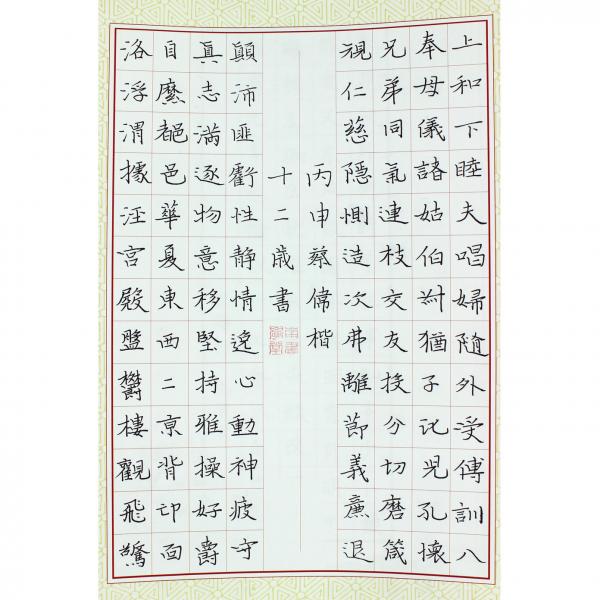 上和下睦夫唱婦隨外受傅訓入
奉母儀諸姑伯叔猶子比兒孔懷
兄弟同氣連枝交友投分切磨箴
規仁慈隱惻造次弗離節義廉退
丙申蔡偉楷
十二歲書
顛沛匪虧性靜情逸心動神疲守
真志滿逐物意移堅持雅操好爵
自縻都邑華夏東西二京背邙面
洛浮渭據涇宮殿盤鬱樓觀飛驚